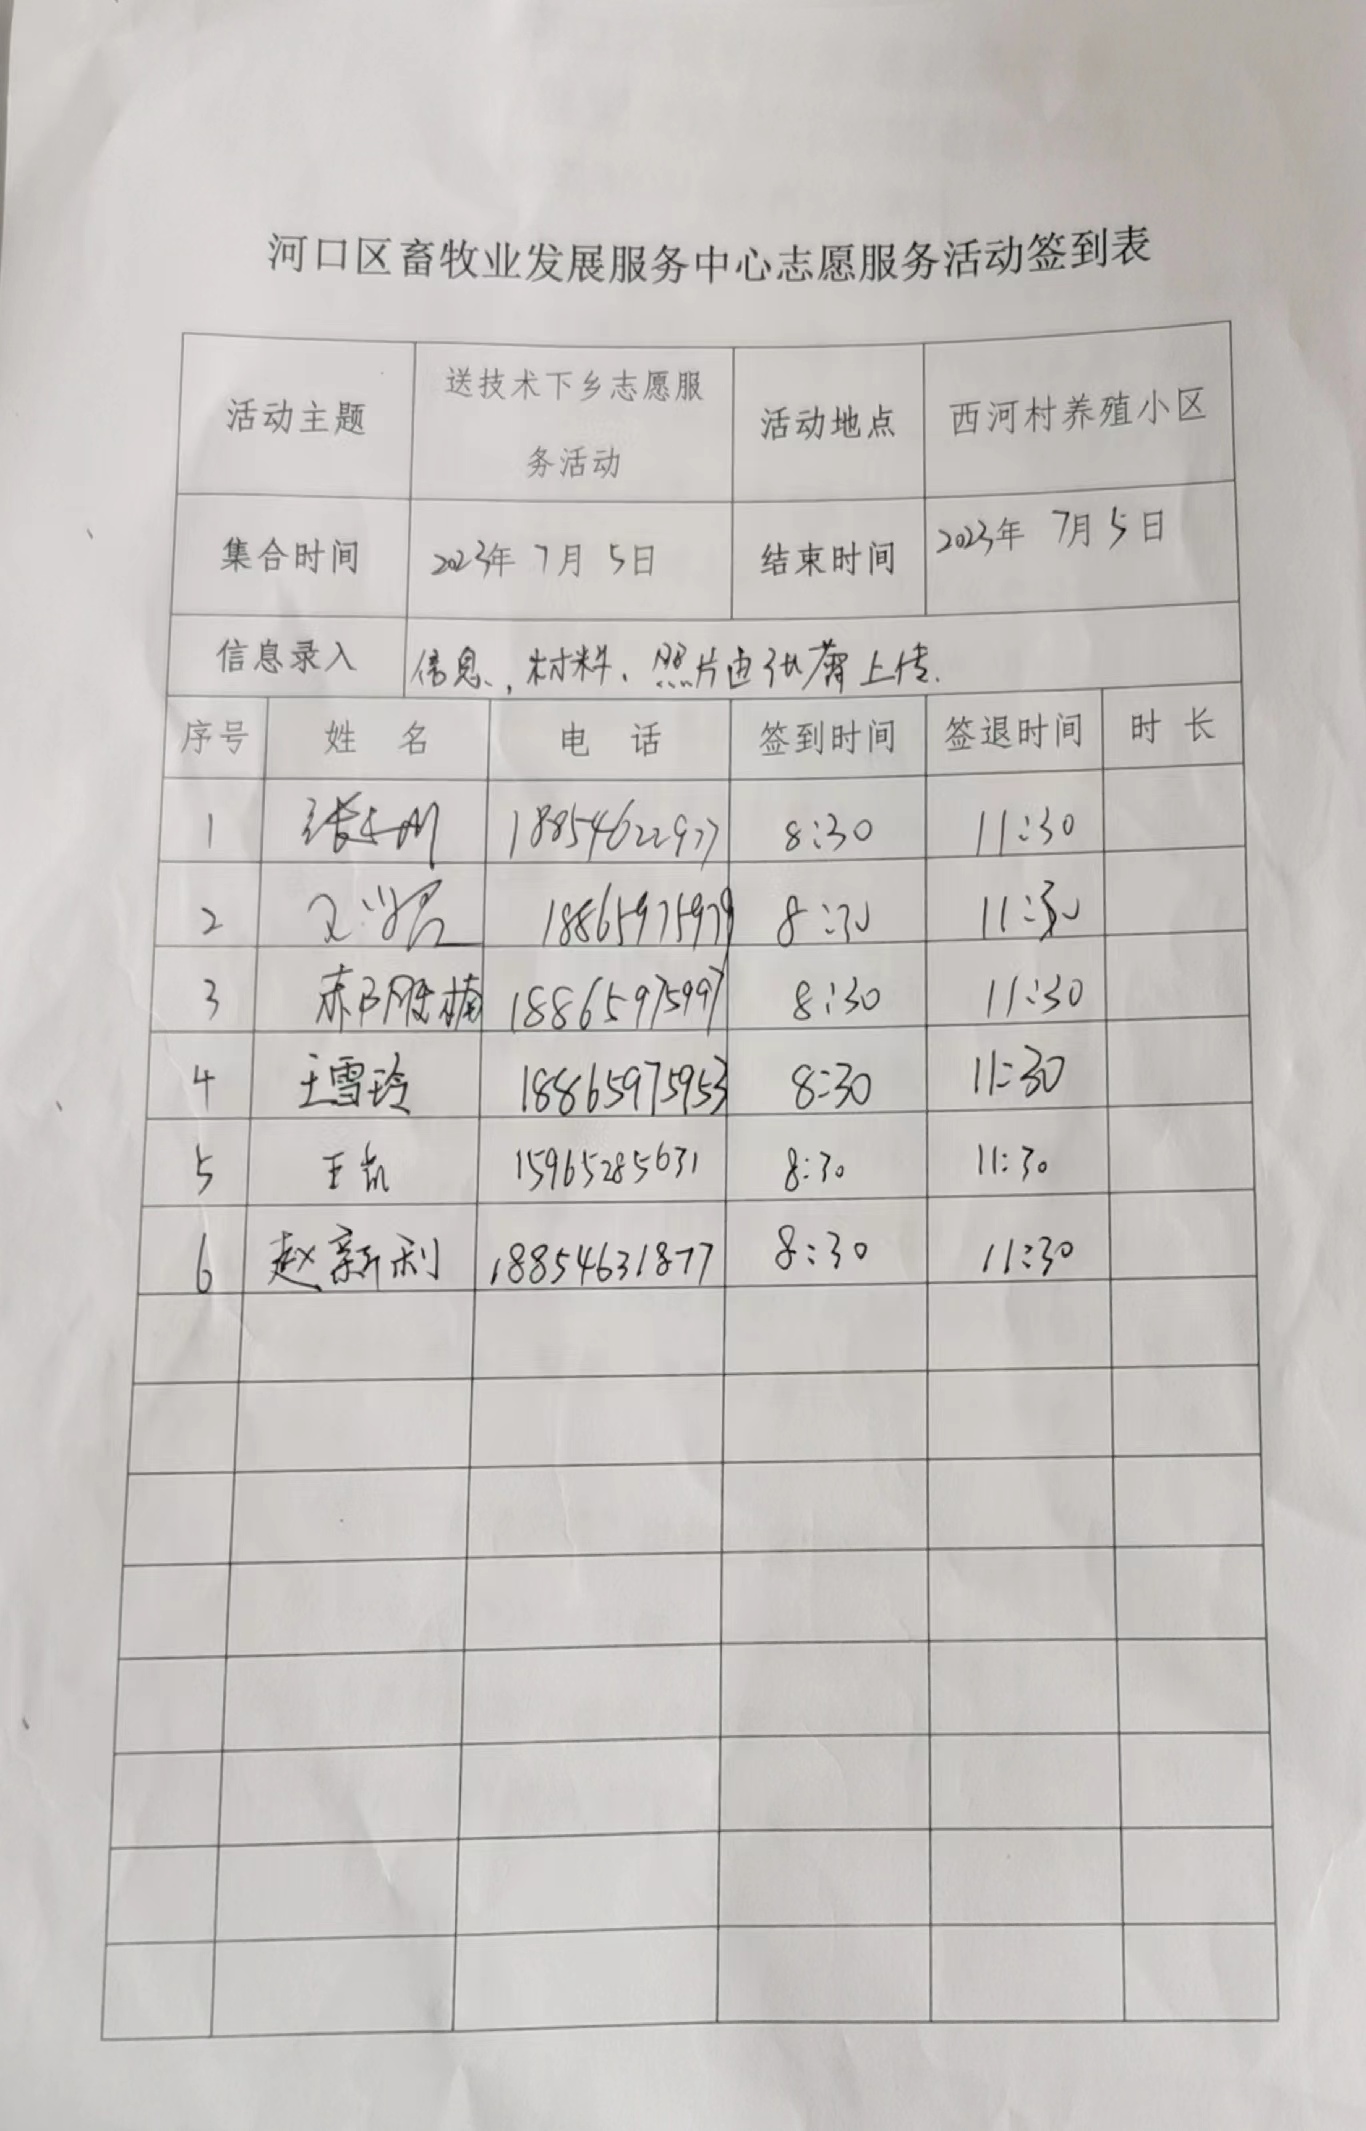 河口区畜牧业发展服务中心志愿服务活动签到表
活动主题 送技术下乡志愿服务活动 活动地点 西河村养殖小区
集合时间 2023年 7月 5日 结束时间 2023年 7月 5日
信息录入 信息、材料、照片由张 上传.
序号 姓 名 电 话 签到时间 签退时间 时 长
1 18854622977 8:30 11:30
2 18865975979 8:30 11:30
3 胜楠 18865975997 8:30 11:30
4 王雪玲 18865975953 8:30 11:30
5 王凯 15965285631 8:30 11:30
6 赵新利 18854631877 8:30 11:30